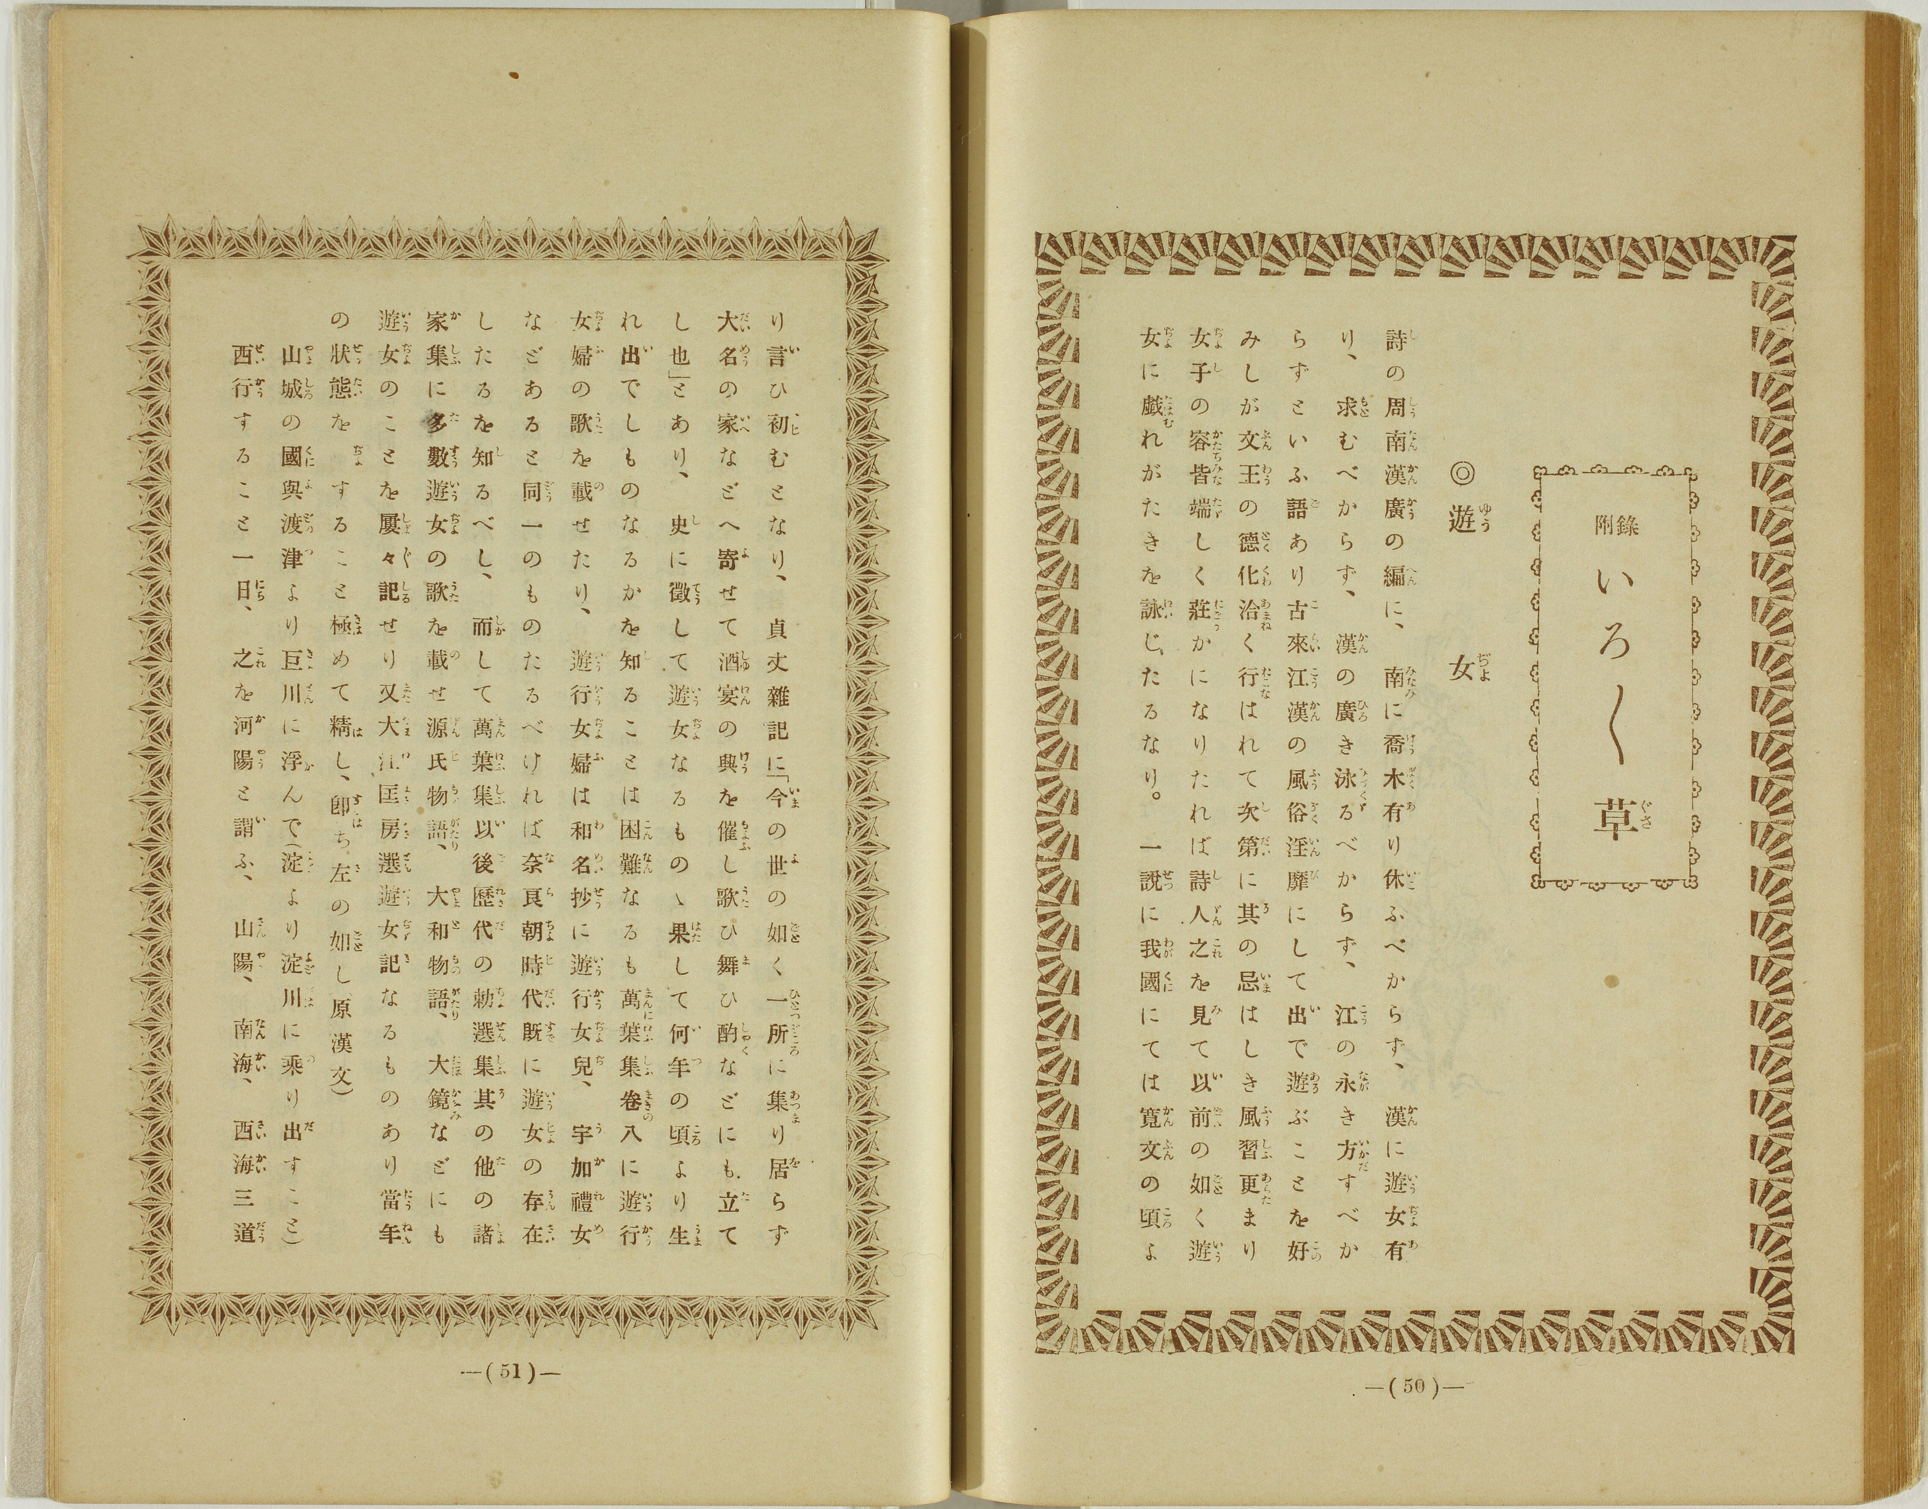 附錄 いろ〱草
◎遊女
詩の周南漢廣の編に、南に喬木有り休ふべからず、漢に遊女有
り、求むべからず、漢の廣き泳るべからず、江の永き方すべか
らずといふ語あり古來江漢の風俗淫靡にして出で遊ぶことを好
みしが文王の德化洽く行はれて次第に其の忌はしき風習更まり
女子の容皆端しく莊かになりたれば詩人之を見て以前の如く遊
女に戲れがたきを詠じたるなり。一說に我國にては寬文の頃よ
―(50)―
り言ひ初むとなり、貞丈雜記に「今の世の如く一所に集り居らず
大名の家などへ寄せて酒宴の興を催し歌ひ舞ひ酌などにも立て
し也」とあり、史に徵して遊女なるものゝ果して何年の頃より生
れ出でしものなるかを知ることは困難なるも萬葉集卷八に遊行
女婦の歌を載せたり、遊行女婦は和名抄に遊行女兒、宇加禮女
などあると同一のものたるべければ奈良朝時代既に遊女の存在
したるを知るべし、而して萬葉集以後歷代の勅選集其の他の諸
家集に多數遊女の歌を載せ源氏物語、大和物語、大鏡などにも
遊女のことを屢々記せり又大江匡房選遊女記なるものあり當年
の狀態をすること極めて精し、卽ち左の如し（原漢文）
山城の國與渡津より巨川に浮んで（淀より淀川に乘り出すこと）
西行すること一日、之を河陽と謂ふ、山陽、南海、西海三道
―(51)―